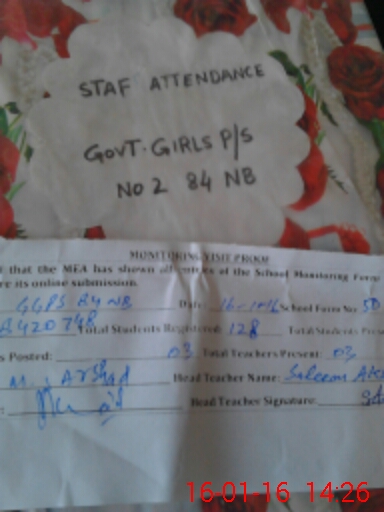 STAF ATTENDANCE
GOVT. GIRLS P/S
NO 2 84 NB
MONITORING VISIT PROOF
that the MEA has shown all entries of the School Monitoring Form
re its online submission.
GGPS 84 NB Date: 16-1-16 School Form No: 50
420748 Total Students Registered: 128 Total Students Pres
s Posted: 03 Total Teachers Present: 03
M. Arshad Head Teacher Name: Saleem
Head Teacher Signature:
16-01-16 14:26